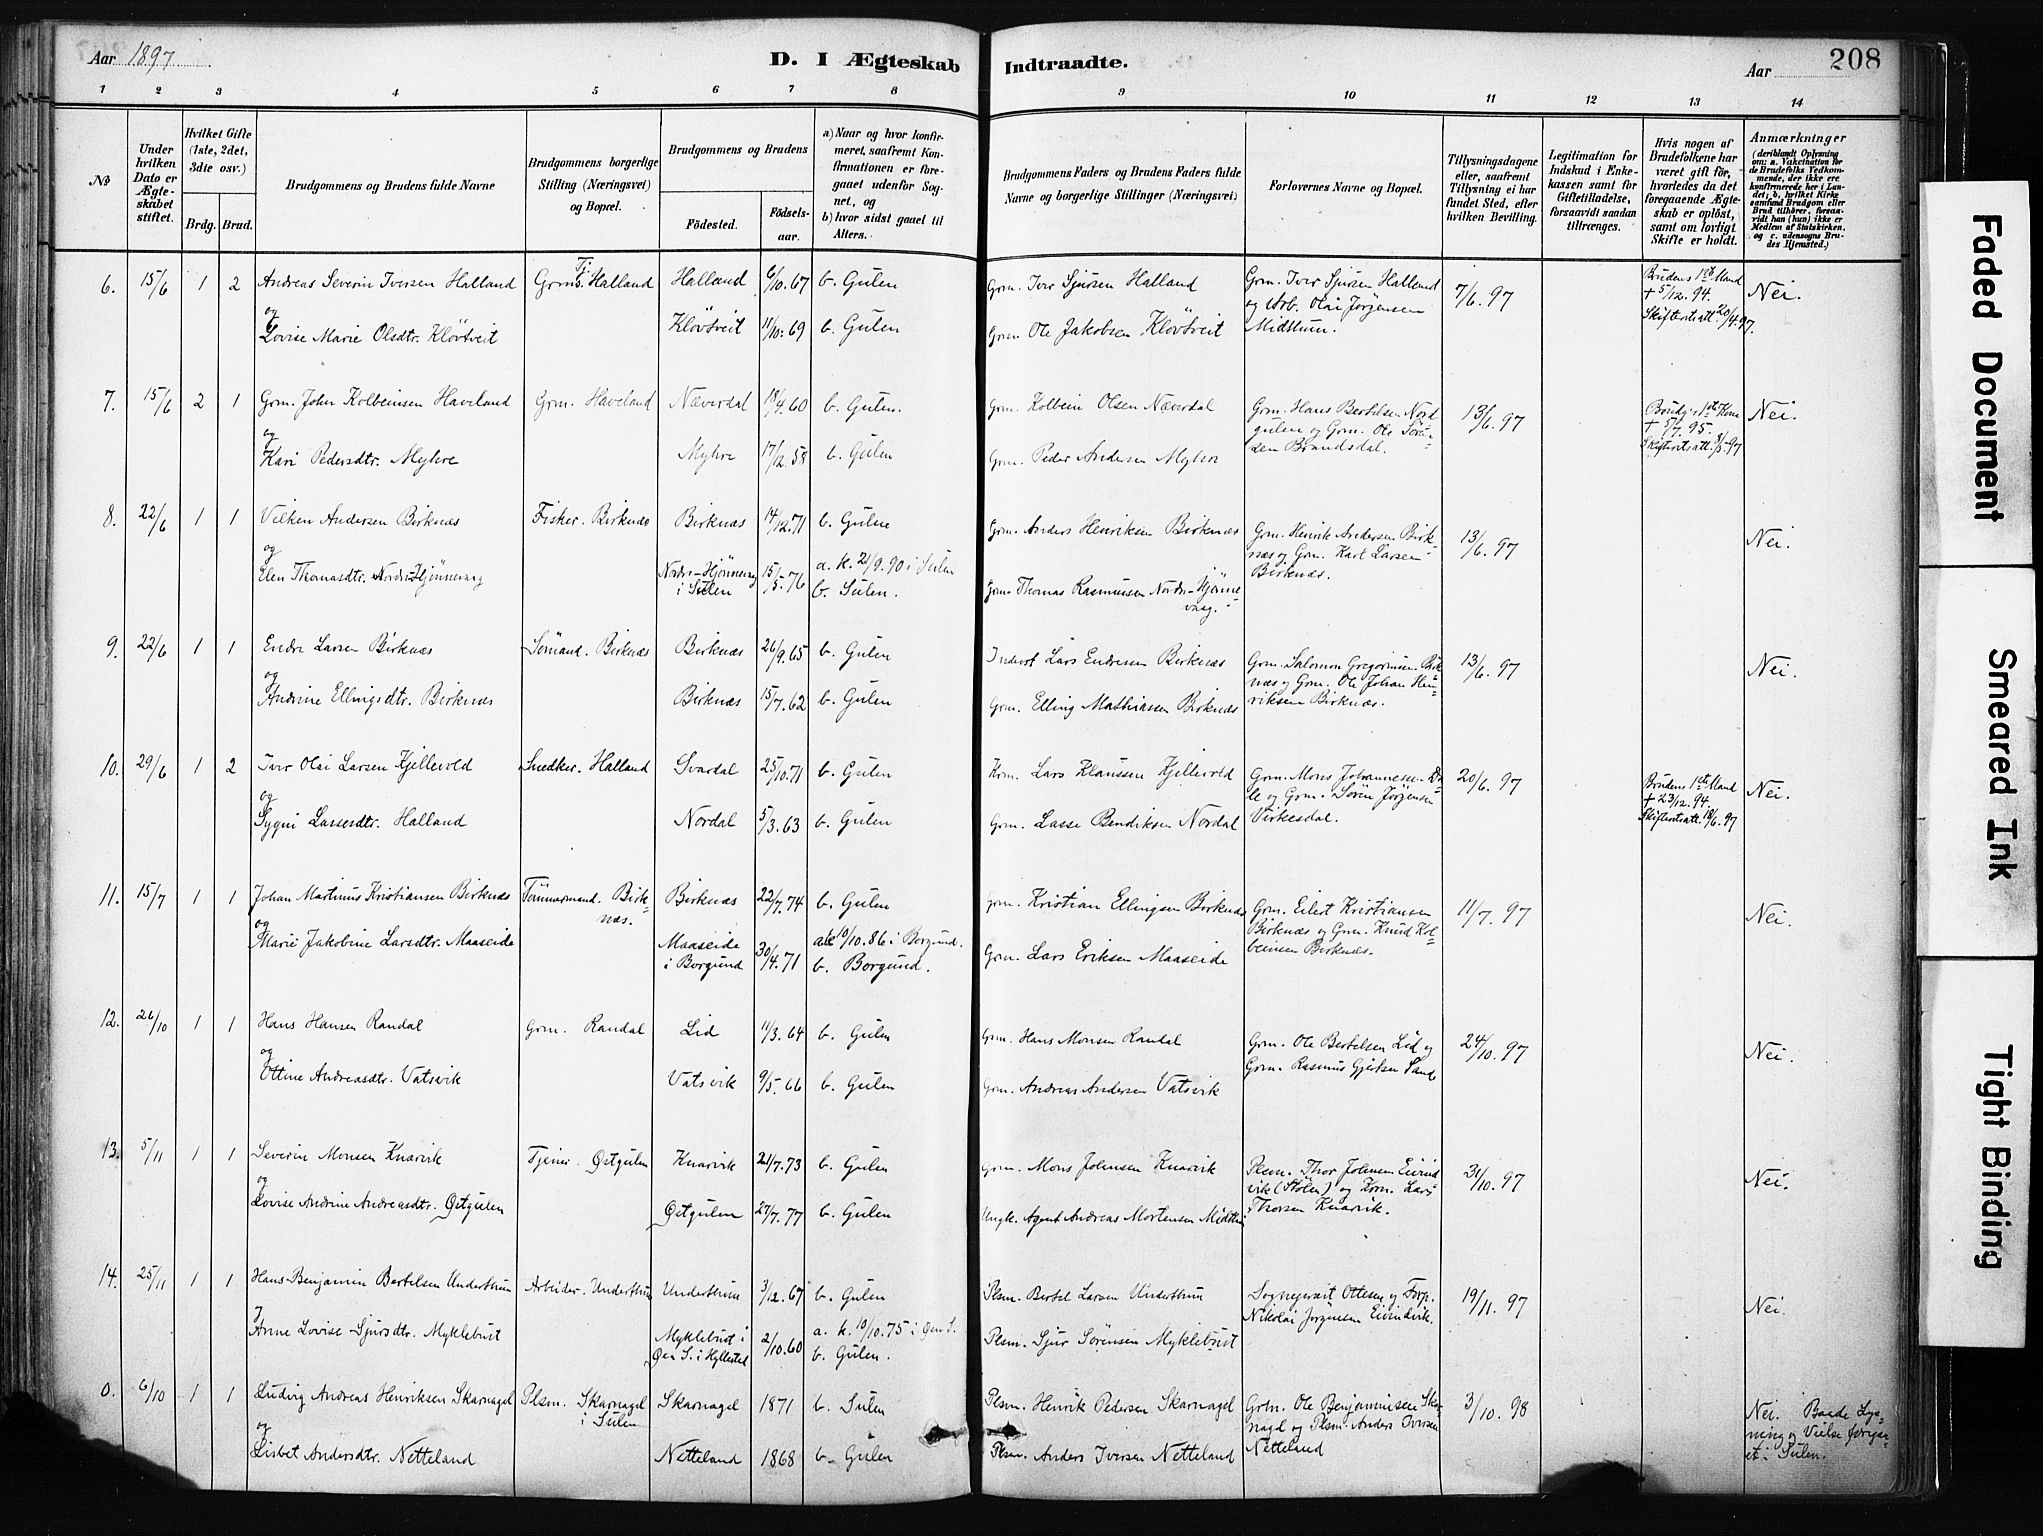 Aar 1897
D. I Ægteskab Indtraadte.
Aar
208
1 2 3 4 5 6 7 8 9 10 11 12 13 14
No
Under hvilken Dato er Ægteskabet stiftet.
Hvilket Gifte (1ste, 2det, 3die osv.)
Brdg. Brud.
Brudgommens og Brudens fulde Navne
Brudgommens borgerlige Stilling (Næringsvei) og Bopæl.
Brudgommens og Brudens
Fødested.
Fødselsaar.
a) Naar og hvor konfirmeret, saafremt Konfirmationen er foregaaet udenfor Sognet, og
b) hvor sidst gaaet til Alters.
Brudgommens Faders og Brudens Faders fulde Navne og borgerlige Stillinger (Næringsvei)
Forlovernes Navne og Bopæl.
Tillysningsdagene eller, saafremt Tillysning ei har fundet Sted, efter hvilken Bevilling.
Legitimation for Indskud i Enkekassen samt for Giftetilladelse, forsaavidt saadan tiltrænges.
Hvis nogen af Brudefolkene har været gift før, hvorledes da det foregaaende Ægteskab er opløst, samt om lovligt Skifte er holdt.
Anmærkninger
(deriblandt Oplysning om: a. Vakcination for de Brudefolks Vedkommende, der ikke ere konfirmerede her i Landet; b. hvilket Kirkesamfund Brudgom eller Brud tilhører, forsaavidt han (hun) ikke er Medlem af Statskirken, og c. udensogns Brudes Hjemsted.)
6. 15/6 1 2 Andreas Severin Iversen Halland Grms. Tj. Halland Halland 6/10.67 b. Gulen Grm. Iver Sjursen Halland Grm. Iver Sjursen Halland 7/6.97 Brudens 1ste Mand Nei.
og + 5/12.94.
og Arb. Olai Jørgensen
Lovise Marie Olsdtr. Kløvtveit Kløvtveit 11/10.69 b. Gulen Grm. Ole Jakobsen Kløvtveit Midttun. Skifteretsatt. 20/4.97.
7. 15/6 2 1 Grm. John Kolbeinsen Haveland Grm. Haveland Næverdal 18/4.60 b. Gulen. Grm. Kolbein Olsen Næverdal Grm. Hans Bertelsen Nord 13/6.97 Brudg.s 1ste Kone Nei.
og gulen og Grm. Ole Søren + 5/7.95.
Kari Pedersdtr. Myhre Myhre 17/12.58 b. Gulen Grm. Peder Andersen Myhre sen Brandsdal. Skifteretsatt. 8/5.97
8. 22/6 1 1 Vilken Andersen Birknæs Fisker. Birknæs Birknæs 14/12.71 b. Gulen Grm. Anders Henriksen Birknæs Grm. Henrik Andersen Birk- 13/6.97 Nei.
og næs og Grm. Karl Larsen
Elen Thomasdtr. Nordr-Hjønnevaag Nordr-Hjønnevag 15/5.76 a. k. 21/9.90 i Sulen Birknæs.
i Sulen b. Sulen. Grm. Thomas Rasmussen Nordr-Hjønne-
vaag.
9. 22/6 1 1 Endre Larsen Birknæs Sømand. Birknæs Birknæs 26/9.65 b. Gulen Inderst Lars Endresen Birknæs Grm. Salomon Gregoriusen Birk 13/6.97 Nei.
og næs og Grm. Ole Johan Hen-
Andrine Ellingsdtr. Birknæs Birknæs 15/7.62 b. Gulen Grm. Elling Mathiassen Birknæs riksen Birknæs.
10. 29/6 1 2 Iver Olai Larsen Kjellevold Snedker. Halland Svardal 25/10.71 b. Gulen Krm. Lars Klaussen Kjellevold Grm. Mons Johannessen Da- 20/6.97 Brudens 1ste Mand Nei.
og le og Grm. Søren Jørgensen + 23/12.94.
Sygni Lassesdtr. Halland Nordal 5/3.63 b. Gulen Grm. Lasse Bendiksen Nordal Virkesdal. Skifteretsatt. 18/6.97
11. 15/7 1 1 Johan Martinus Kristiansen Birknæs Tømmermand. Birk- Birknæs 22/7.74 b. Gulen Grm. Kristian Ellingsen Birknæs Grm. Eilert Kristiansen 11/7.97 Nei.
og næs. Birknæs og Grm. Knud Kol-
Marie Jakobine Larsdtr. Maaseide Maaseide 30/4.71 a.k. 10/10.86 i Borgund. Grm. Lars Eriksen Maaseide beinsen Birknæs.
i Borgund b. Borgund.
12. 26/10 1 1 Hans Hansen Randal Grm. Randal Lid 11/3.64 b. Gulen Grm. Hans Monsen Randal Grm. Ole Bertelsen Lid og 24/10.97 Nei.
og Grm. Rasmus Gjertsen Sande
Ottine Andreasdtr. Vatsvik Vatsvik 9/5.66 b. Gulen Grm. Andreas Andersen Vatsvik
13. 5/11 1 1 Severin Monsen Knarvik Tjener. Østgulen Knarvik 21/7.73 b. Gulen Grm. Mons Johnsen Knarvik Plsm. Thor Johnsen Eivind 31/10.97 Nei.
og vik (Stølen) og Krm. Lars
Lovise Andrine Andreasdtr. Østgulen Østgulen 27/7.77 b. Gulen Ungk. Agent Andreas Mortensen Midttun Thorsen Knarvik.
14. 25/11 1 1 Hans Benjamin Bertelsen Underthun Arbeider. Underthun Underthun 3/12.67 b. Gulen Plsm. Bertel Larsen Underthun Sogneprest Ottesen og Forp. 19/11.97 Nei.
og Nikolai Jørgensen Eivindvik.
Anne Lovise Sjursdtr. Myklebust Myklebust i 2/10.60 a. k. 10/10.75 i Øen S. Plsm. Sjur Sørensen Myklebust
Øen S. i Hyllestad b. Gulen.
0. 6/10 1 1 Ludvig Andreas Henriksen Skarnagel Plsm. Skarnagel Skarnagel 1871 b. Sulen Plsm. Henrik Pedersen Skarnagel Grm. Ole Benjaminsen Skar 3/10.98 Nei. Baade Lys-
og i Sulen nagel og Plsm. Anders Iversen ning og Vielse foregaa-
Lisbet Andersdtr. Netteland Netteland 1868 b. Gulen Plsm. Anders Iversen Netteland Netteland et i Sulen.
Faded Document
Smeared Ink
Tight Binding